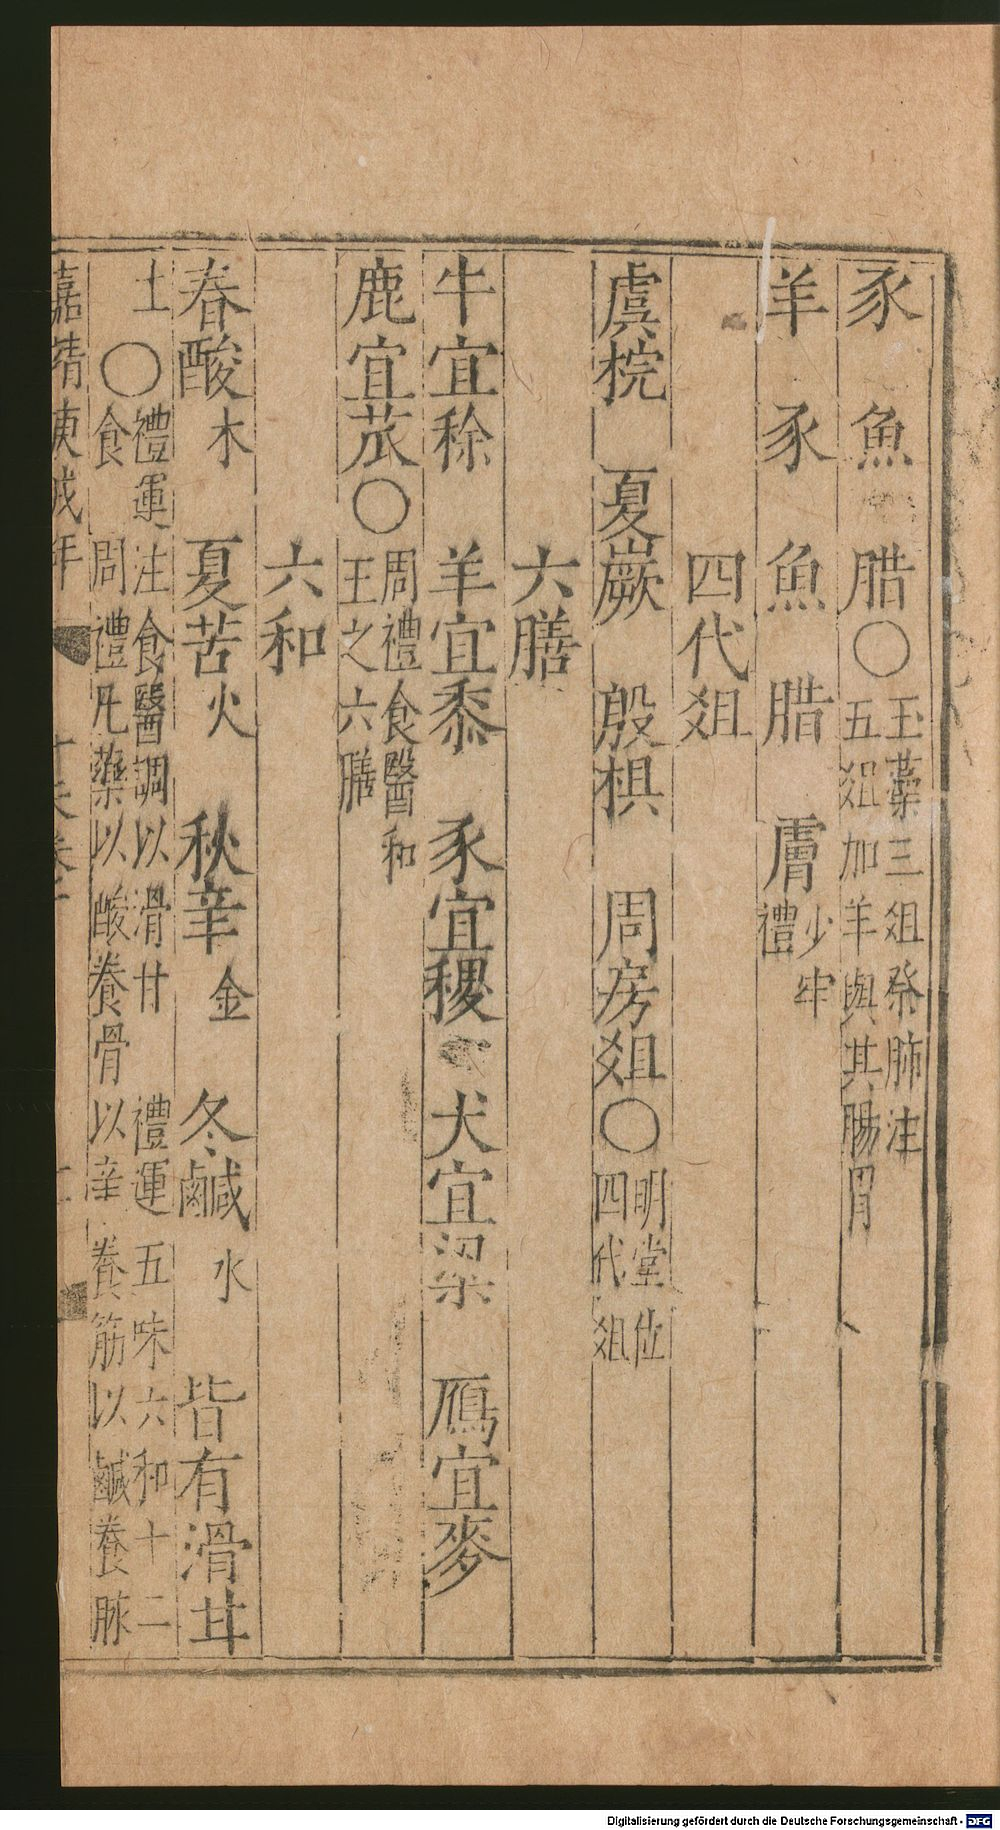 豕　魚　腊○玉藻三俎祭肺注
五俎加羊與其腸胃
羊　豕　魚　腊　膚少牢
禮
四代俎
虞梡　夏嶡　殷椇　周房俎○明堂位
四代俎
六膳
牛宜稌　羊宜黍　豕宜稷　犬宜粱　鴈宜麥
鹿宜苽○周禮食醫和
王之六膳
六和
春酸木　夏苦火　秋辛金　冬鹹水　皆有滑甘
土○禮運注食醫調以滑甘　禮運五味六和十二
食　周禮凡藥以酸養骨以辛養筋以鹹養脉
嘉靖庚戌年
Digitalisierung gefördert durch die Deutsche Forschungsgemeinschaft - DFG